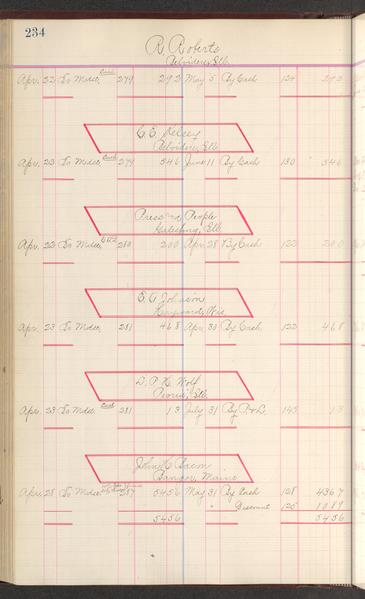 234
R. Roberts
Belvidere, Ill.
Apr. 22 To Mdse, Cash 279 292 May 5 By Cash 124 292
C. E. Kelsey
Belvidere, Ill.
Apr. 23 To Mdse, Cash 279 546 June 11 By Cash 130 546
Press and People
Galesburg, Ill.
Apr. 23 To Mdse, 280 200 Apr. 28 By Cash 122 200
E. A. Johnson
Wis.
Apr. 23 To Mdse, 281 468 Apr. 30 By Cash 122 468
D. P. H. Wolf
Peoria, Ill.
Apr. 23 To Mdse. Cash 281 13 July 31 By P & L. 145 13
John C. Bacon
Bangor, Maine
Apr. 28 To Mdse. 287 5456 May 31 By Cash 128 4367
" Discount 125 1089
5456 5456